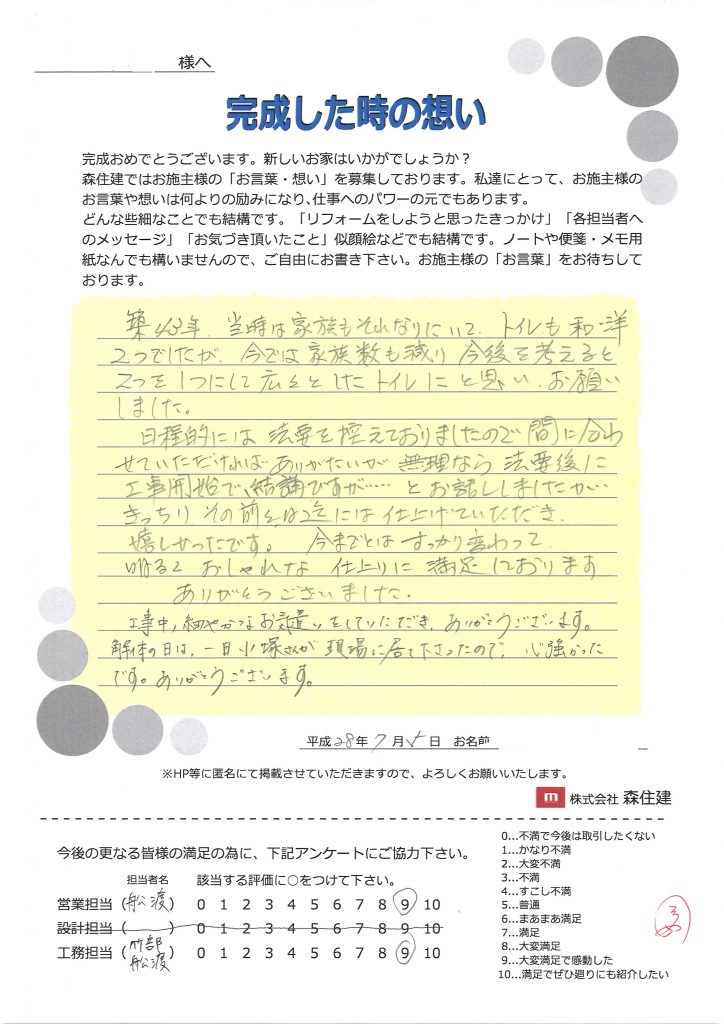 様へ
完成した時の想い
完成おめでとうございます。新しいお家はいかがでしょうか？
森住建ではお施主様の「お言葉・想い」を募集しております。私達にとって、お施主様の
お言葉や想いは何よりの励みになり、仕事へのパワーの元でもあります。
どんな些細なことでも結構です。「リフォームをしようと思ったきっかけ」「各担当者へ
のメッセージ」「お気づき頂いたこと」似顔絵などでも結構です。ノートや便箋・メモ用
紙なんでも構いませんので、ご自由にお書き下さい。お施主様の「お言葉」をお待ちして
おります。
築43年、当時は家族もそれなりにいて、トイレも和・洋
2つでしたが、今では家族数も減り 今後を考えると
2つを1つにして広々としたトイレにと思い、お願い
しました。
日程的には法要を控えておりましたので間に合わ
せていただければありがたいが 無理なら 法要後に
工事開始で、結講ですが…… とお話ししましたが…
きっちり その前には仕上げていただき、
嬉しかったです。 今までとは すっかり変わって、
明るく おしゃれな 仕上りに 満足しております
ありがとうございました。
工事中、細やかなお気遣いをしていただき、ありがとうございます。
解体の日は、一日小塚さんが現場に居て下さったので、心強かった
です。ありがとうございます。
平成28年7月 日 お名前
※HP等に匿名にて掲載させていただきますので、よろしくお願いいたします。
m 株式会社 森住建
今後の更なる皆様の満足の為に、下記アンケートにご協力下さい。
担当者名 該当する評価に○をつけて下さい。
営業担当（船渡） 0 1 2 3 4 5 6 7 8 9 10
設計担当（ ） 0 1 2 3 4 5 6 7 8 9 10
工務担当（竹部 船渡） 0 1 2 3 4 5 6 7 8 9 10
0…不満で今後は取引したくない
1…かなり不満
2…大変不満
3…不満
4…すこし不満
5…普通
6…まあまあ満足
7…満足
8…大変満足
9…大変満足で感動した
10…満足でぜひ廻りにも紹介したい